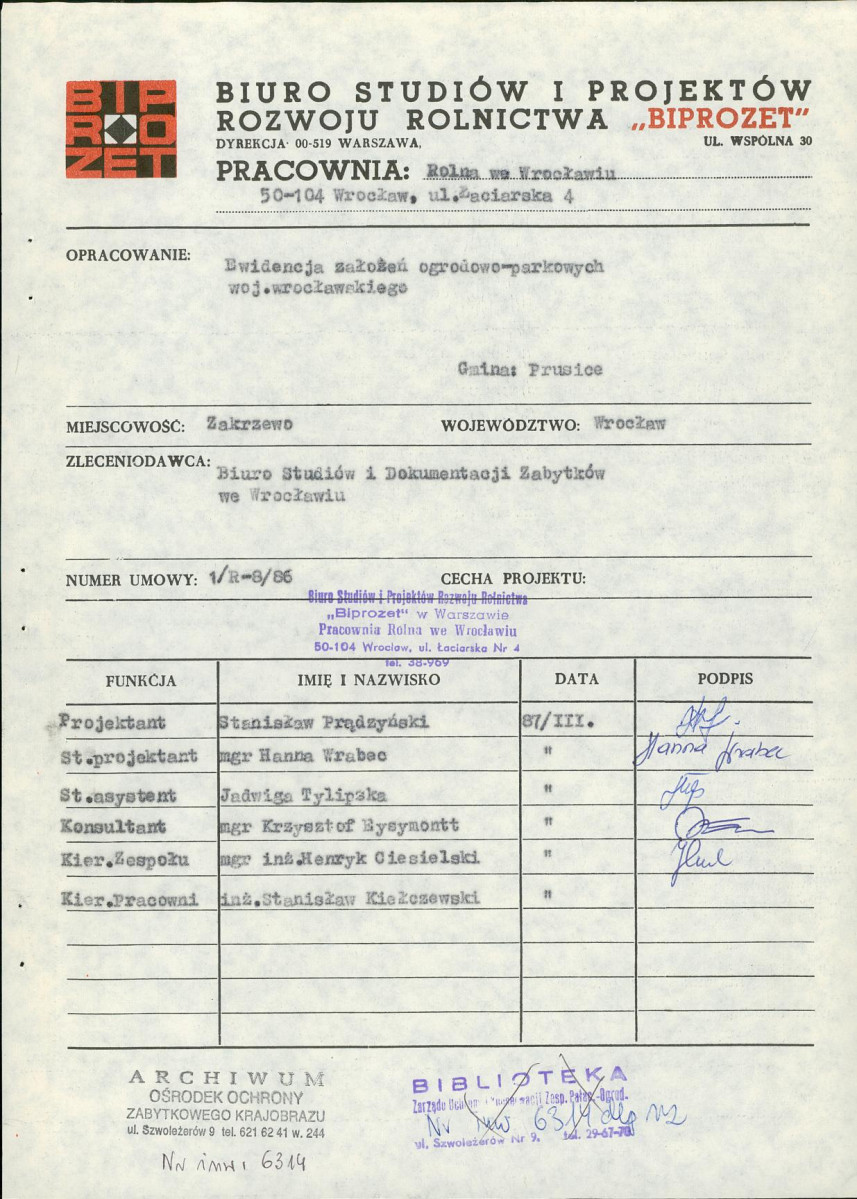 BIP
RO
ZET
BIURO STUDIÓW I PROJEKTÓW
ROZWOJU ROLNICTWA „BIPROZET"
DYREKCJA· 00-519 WARSZAWA, UL. WSPÓLNA 30
PRACOWNIA: Rolna we Wrocławiu
50-104 Wrocław, ul.Łaciarska 4
OPRACOWANIE:
Ewidencja założeń ogrodowo-parkowych
woj.wrocławskiego
Gmina: Prusice
MIEJSCOWOŚĆ: Zakrzewo WOJEWÓDZTWO: Wrocław
ZLECENIODAWCA:
Biuro Studiów i Dokumentacji Zabytków
we Wrocławiu
NUMER UMOWY: 1/R-8/86 CECHA PROJEKTU:
Biuro Studiów i Projektów Rozwoju Rolnictwa
„Biprozet" w Warszawie
Pracownia Rolna we Wrocławiu
50-104 Wrocław, ul. Łaciarska Nr 4
tel. 38-969
FUNKCJA IMIĘ I NAZWISKO DATA PODPIS
Projektant Stanisław Prądzyński 87/III.
St.projektant mgr Hanna Wrabec " Hanna Wrabec
St.asystent Jadwiga Tylipska "
Konsultant mgr Krzysztof Eysymontt "
Kier.Zespołu mgr inż.Henryk Ciesielski "
Kier.Pracowni inż.Stanisław Kiełczewski "
ARCHIWUM
OŚRODEK OCHRONY
ZABYTKOWEGO KRAJOBRAZU
ul. Szwoleżerów 9 tel. 621 62 41 w. 244
Nr inw. 6314
BIBLIOTEKA
Zarządu Zesp. Pałac.-Ogrod.
Nr inw 6314
ul. Szwoleżerów Nr 9, tel. 29-67-70